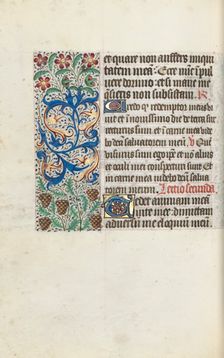 et quare non auffers iniqui
tatem meā: Ecce nūc in
puluere dormio: et si mane me
quesieris non subsistam. R
Credo qͥ redemptor meus
uiuit et in nouissimo die de terra sur
recturus sum et in carne mea vide
bo deū saluatorem meū. V Quē
visurus sum ego ipse et nō alius
et oculi mei conspecturi sunt Et
in carne mea videbo deū salua
torem meum. Lectio secunda.
Tedet animam meā
vite mee: dimittam
aduersū me eloquiū meū.